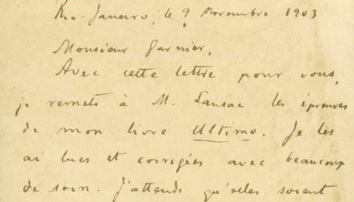 Rio-Janeiro, le 9 Novembre 1903
Monsieur Garnier,
Avec cette lettre pour vous,
je remets à M. Lansac les épreuves
de mon livre Ultimo. Je les
ai lues et corrigées avec beaucoup
de soin. J'attends qu'elles soient